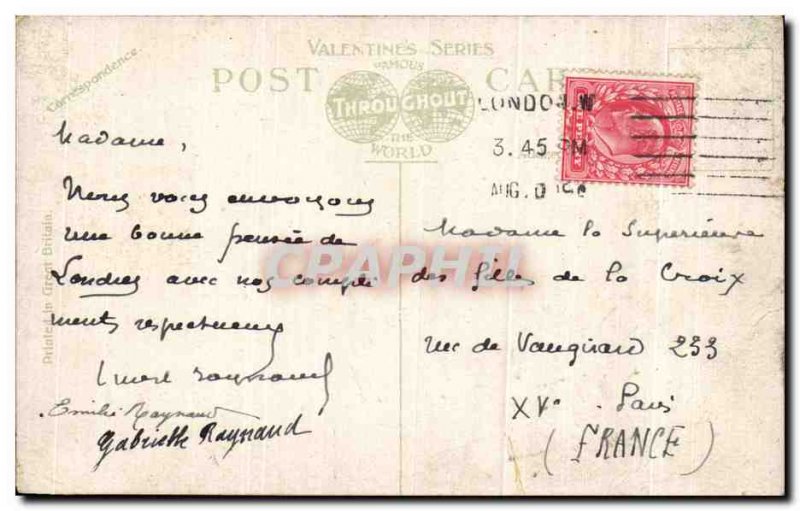 VALENTINE'S SERIES
FAMOUS
POST CARD
THROUGHOUT
THE
WORLD
Correspondence.
Printed in Great Britain.
LONDON.W
3.45 PM
AUG.
Madame,
Nous vous envoyons
une bonne pensée de
Londres avec nos compli
ments respectueux
Raynaud
Emilie Raynaud
Gabrielle Raynaud
Madame la Supérieure
des filles de la Croix
rue de Vaugirard 233
XVe Paris
(FRANCE)
CPAPHIL